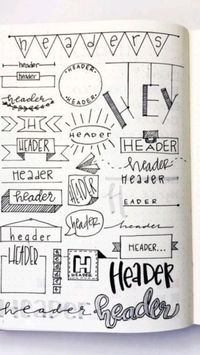 headers
header
header
HEADER
HEADER
HEY
header
H
HEADER
HEADER
HEADER
header
HEADER
HEADER
header
HEADER
header
EADER
header
header
HEADER
HEADER...
H
HEADER
HEADER
header
header